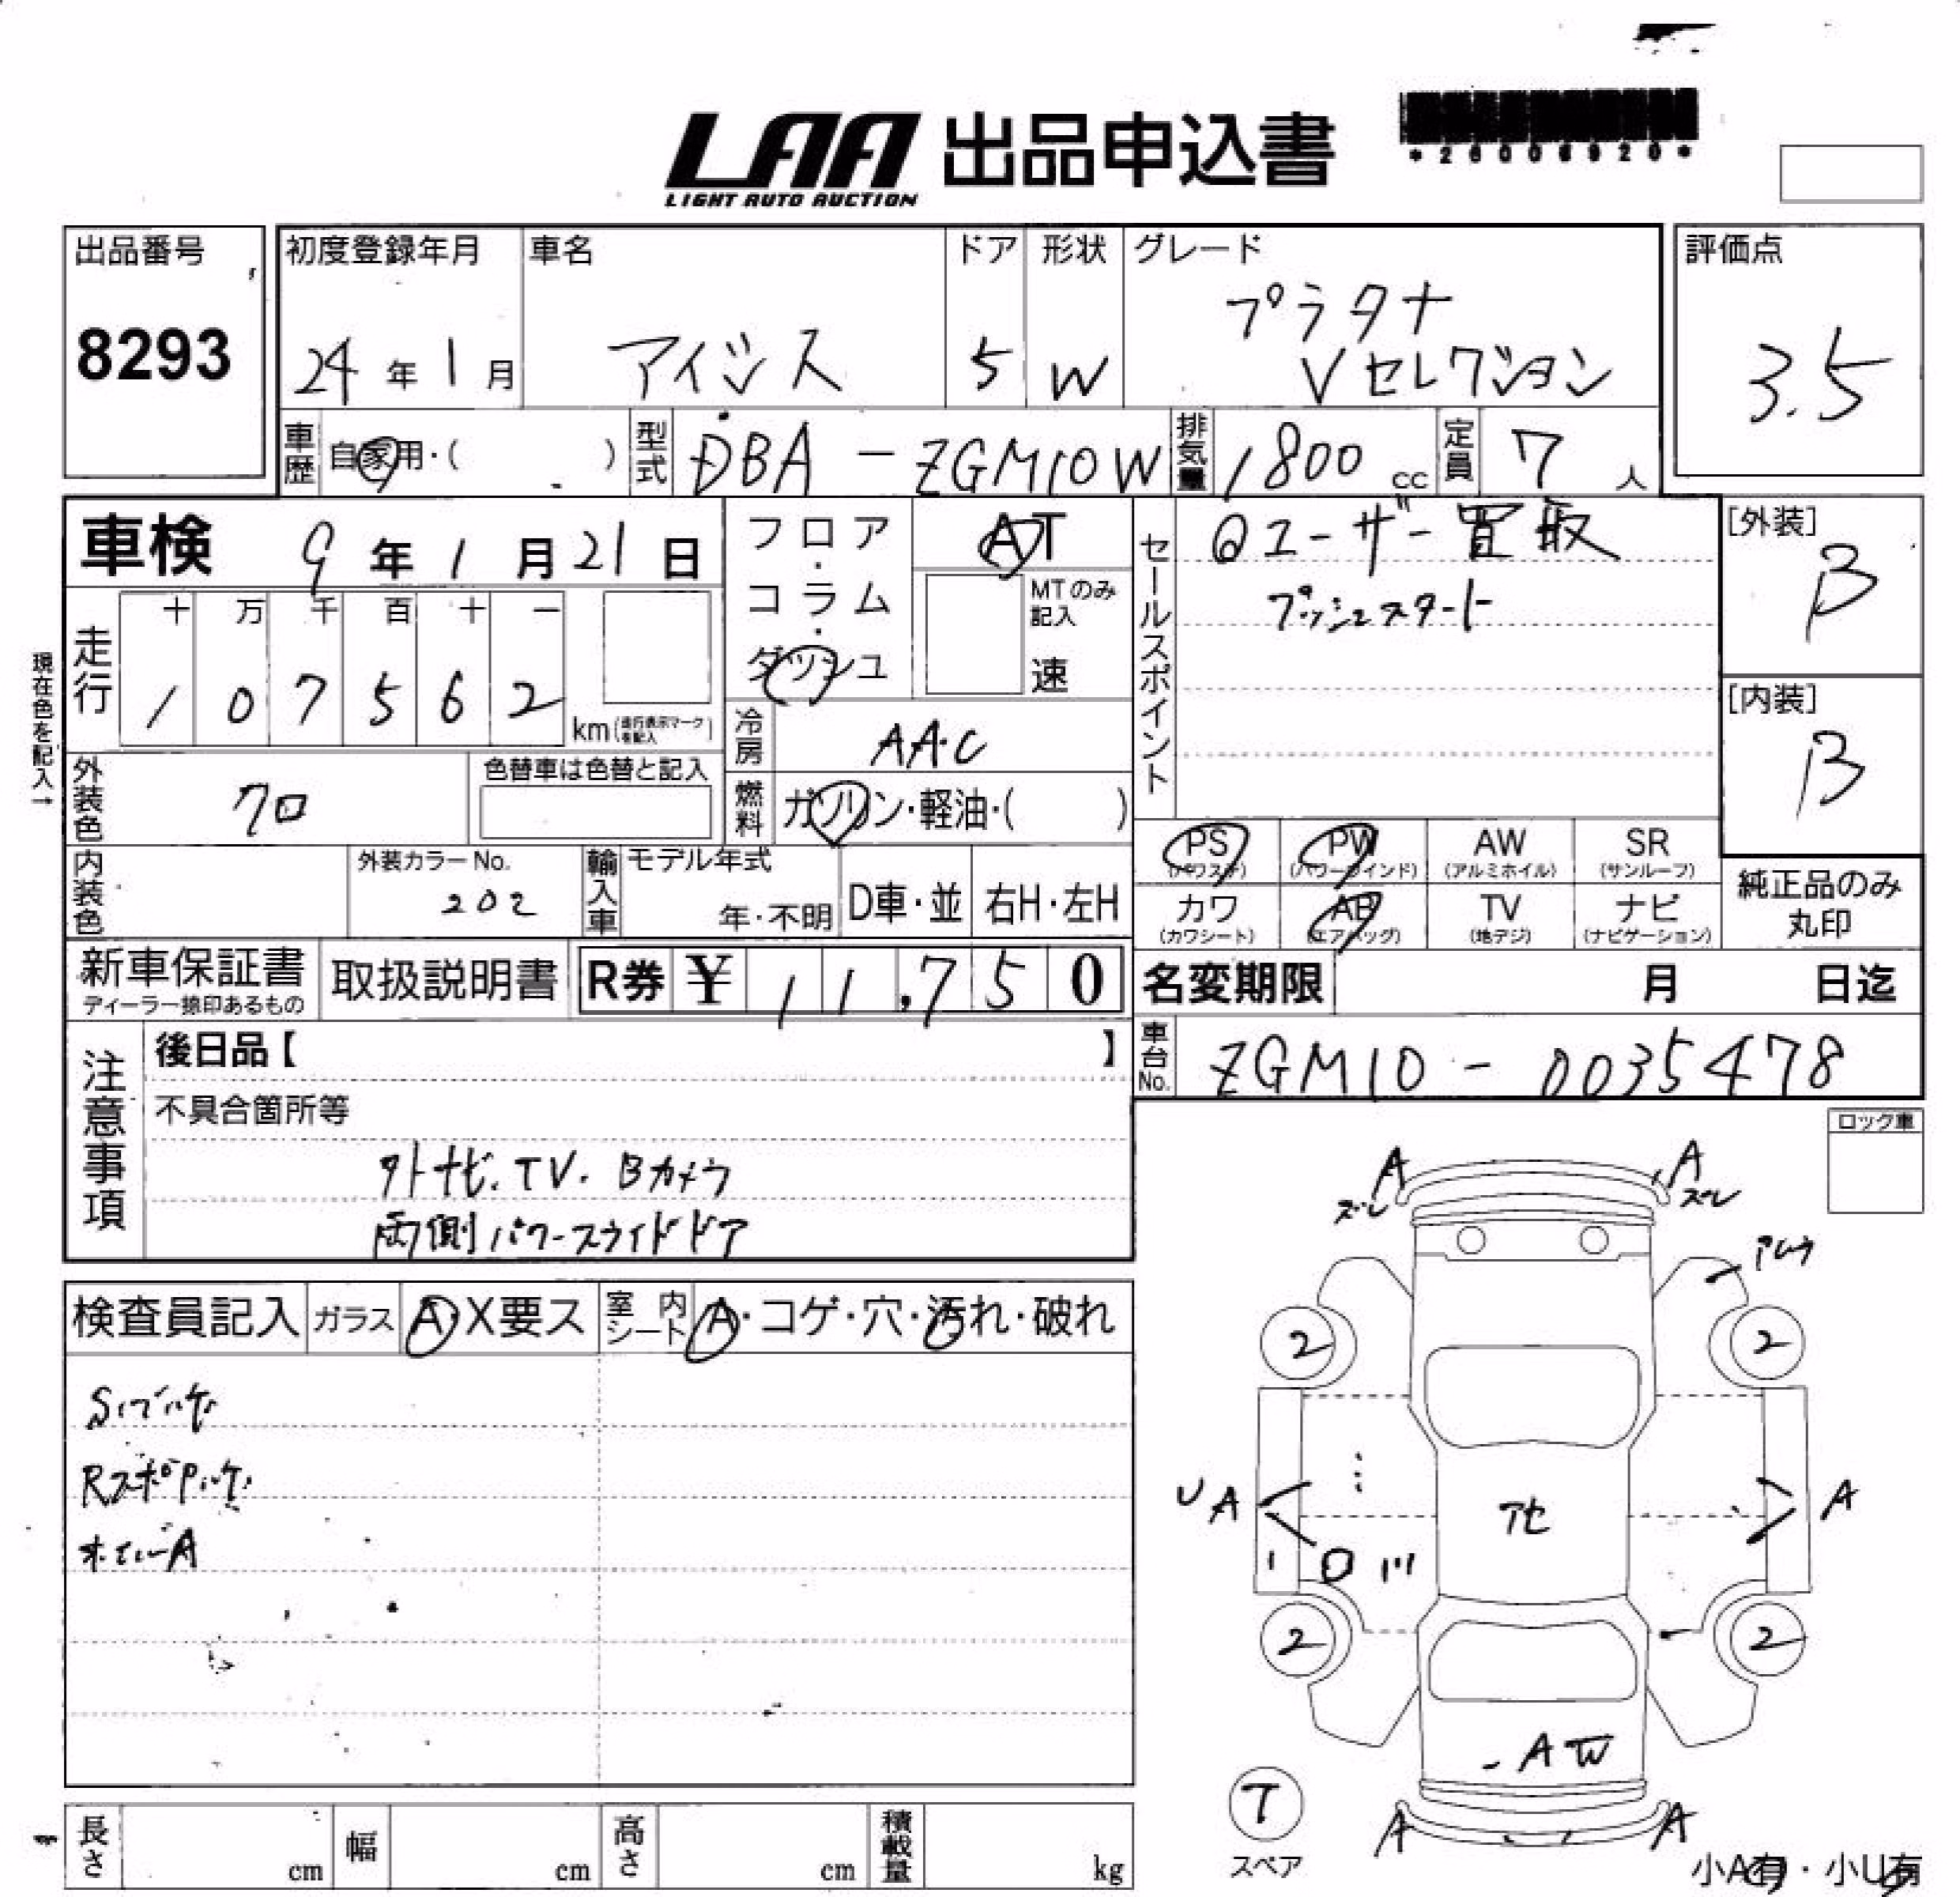 LAA 出品申込書
LIGHT AUTO AUCTION
*26006920*
出品番号
8293
初度登録年月
24年1月
車名
アイシス
ドア
5
形状
W
グレード
プラタナ
Vセレクション
評価点
3.5
車歴 自家用・( )
型式 DBA-ZGM10W
排気量 1800cc
定員 7人
車検 9年1月21日
フロア・コラム・ダッシュ
AT
MTのみ記入
速
セールスポイント
ユーザー買取
プッシュスタート
[外装]
B
[内装]
B
現在色を記入→
走行
十 万 千 百 十 一
1 0 7 5 6 2
km(走行表示マークを記入)
冷房 AAC
外装色 クロ
色替車は色替と記入
燃料 ガソリン・軽油・( )
PS (パワステ)
PW (パワーウインド)
AW (アルミホイル)
SR (サンルーフ)
カワ (カワシート)
AB (エアバッグ)
TV (地デジ)
ナビ (ナビゲーション)
純正品のみ丸印
内装色
外装カラーNo.
202
輸入車
モデル年式
年・不明
D車・並
右H・左H
新車保証書
ディーラー捺印あるもの
取扱説明書
R券 ¥ 11,750
名変期限 月 日迄
車台No. ZGM10-0035478
注意事項
後日品【 】
不具合箇所等
外ナビ.TV.Bカメラ
両側パワースライドドア
ロック車
検査員記入
ガラス A・X要ス
室内シート A・コゲ・穴・汚れ・破れ
A A
ズレ ズレ
2 2
UA A
アセ
2 2
AW
T
スペア
A A
小A有・小U有
長さ cm
幅 cm
高さ cm
積載量 kg